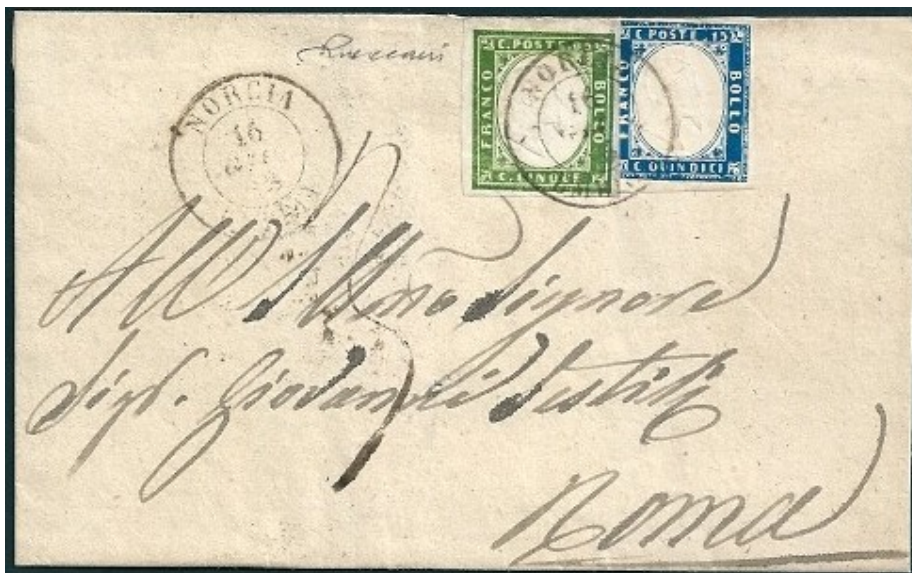 NORCIA
16
C. POSTE 05
FRANCO
BOLLO
C. CINQUE
C. POSTE 15
FRANCO
BOLLO
C. QUINDICI
All' Illmo Signore
Sigr. Giovanni
Roma